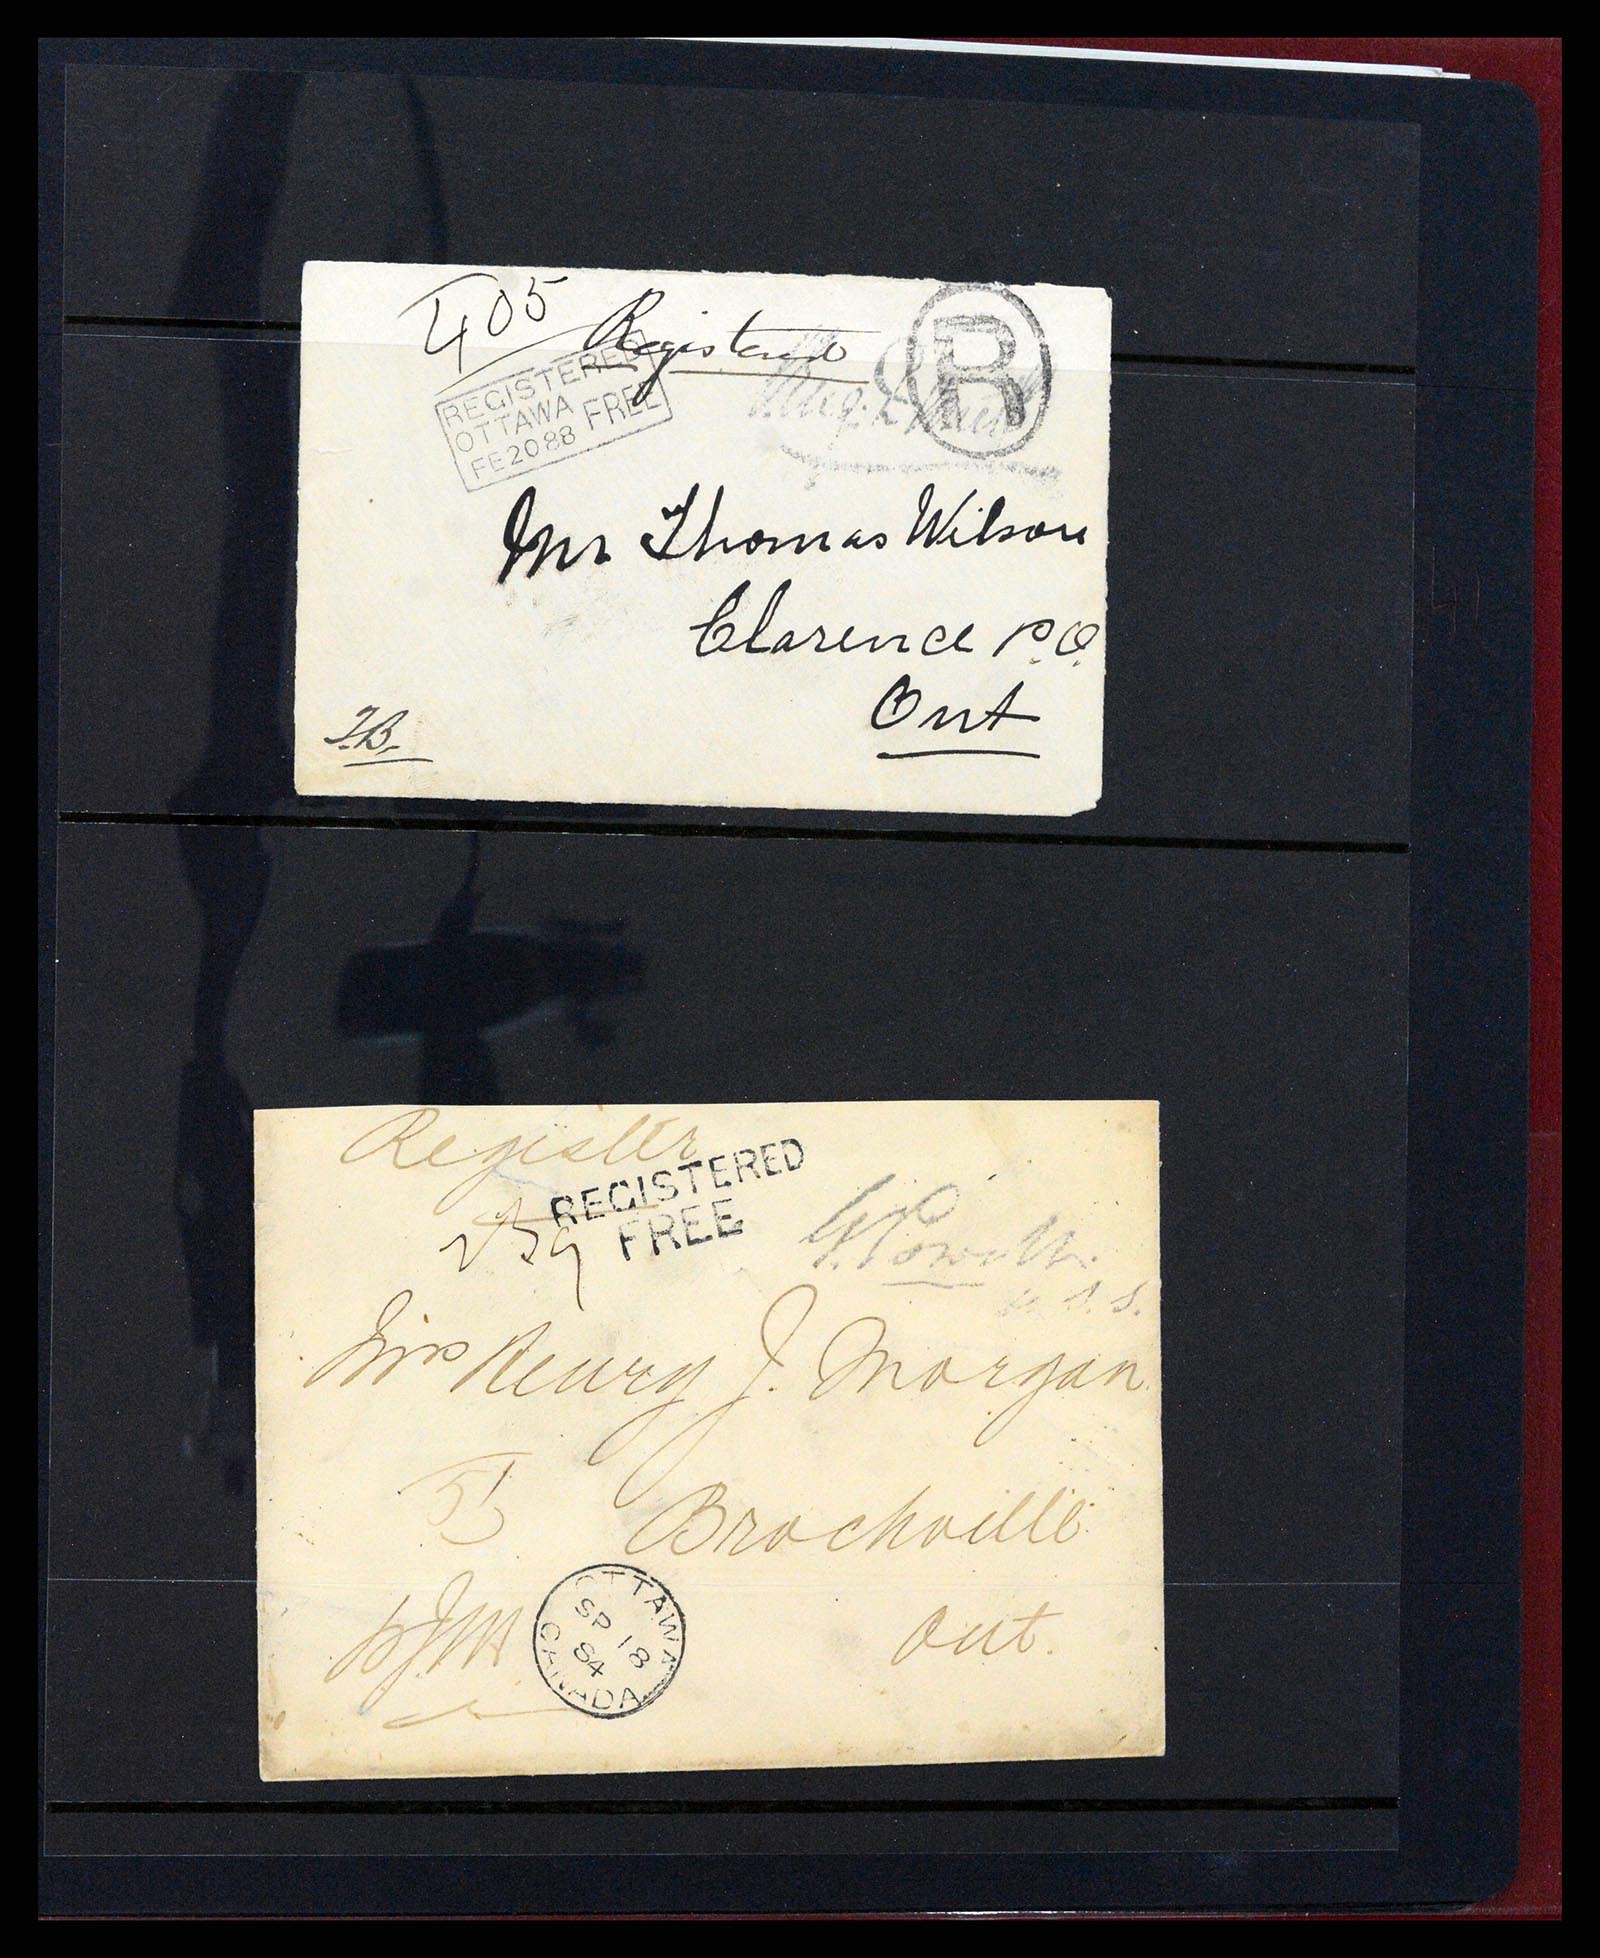 405
Registered
REGISTERED
OTTAWA FREE
FE 20 88
R
Mr Thomas Wilson
Clarence P.O.
Ont
T.B.
Register
REGISTERED
FREE
Mrs Henry J. Morgan
Brockville
Ont.
OTTAWA
SP 18
84
CANADA